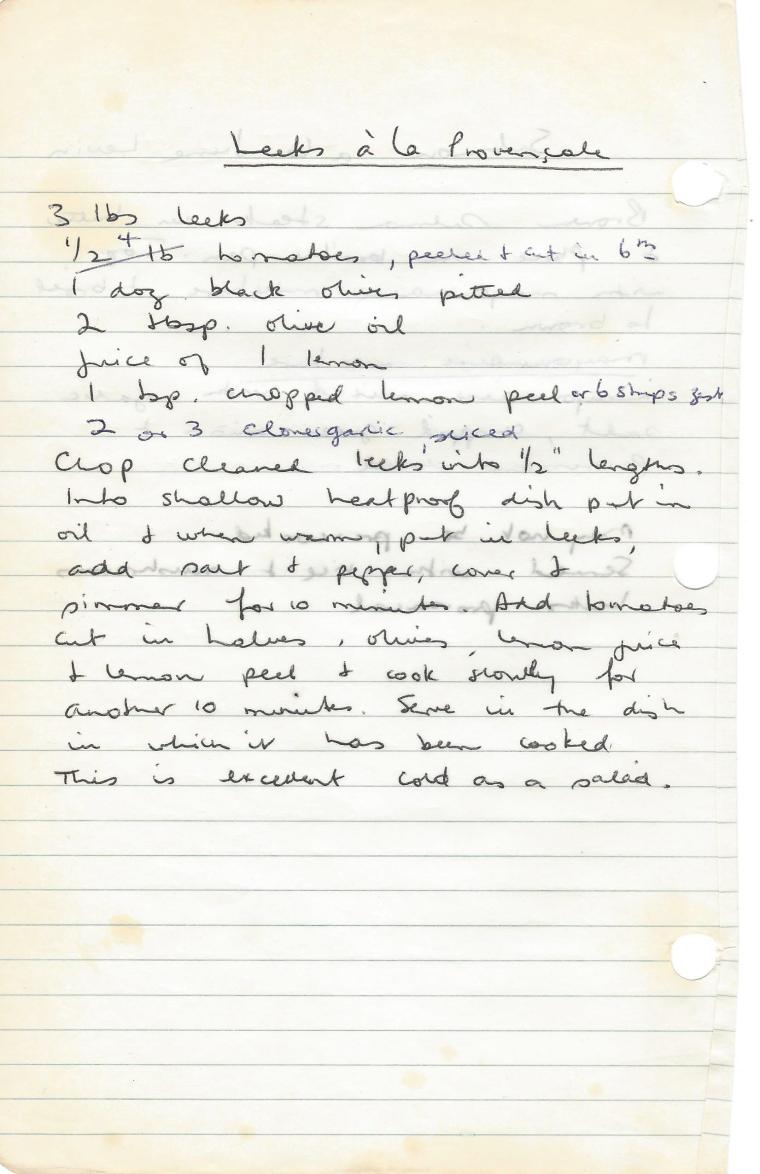 Leeks à la Provençale
3 lbs leeks
1/2 lb 4 tomatoes, peeled & cut in 6ths
1 doz. black olives pitted
2 tbsp. olive oil
Juice of 1 lemon
1 tsp. chopped lemon peel or 6 strips zest
2 or 3 cloves garlic sliced
Chop cleaned leeks into 1/2" lengths.
Into shallow heatproof dish put in
oil & when warm, put in leeks,
add salt & pepper, cover &
simmer for 10 minutes. Add tomatoes
cut in halves, olives, lemon juice
& lemon peel & cook slowly for
another 10 minutes. Serve in the dish
in which it has been cooked.
This is excellent cold as a salad.